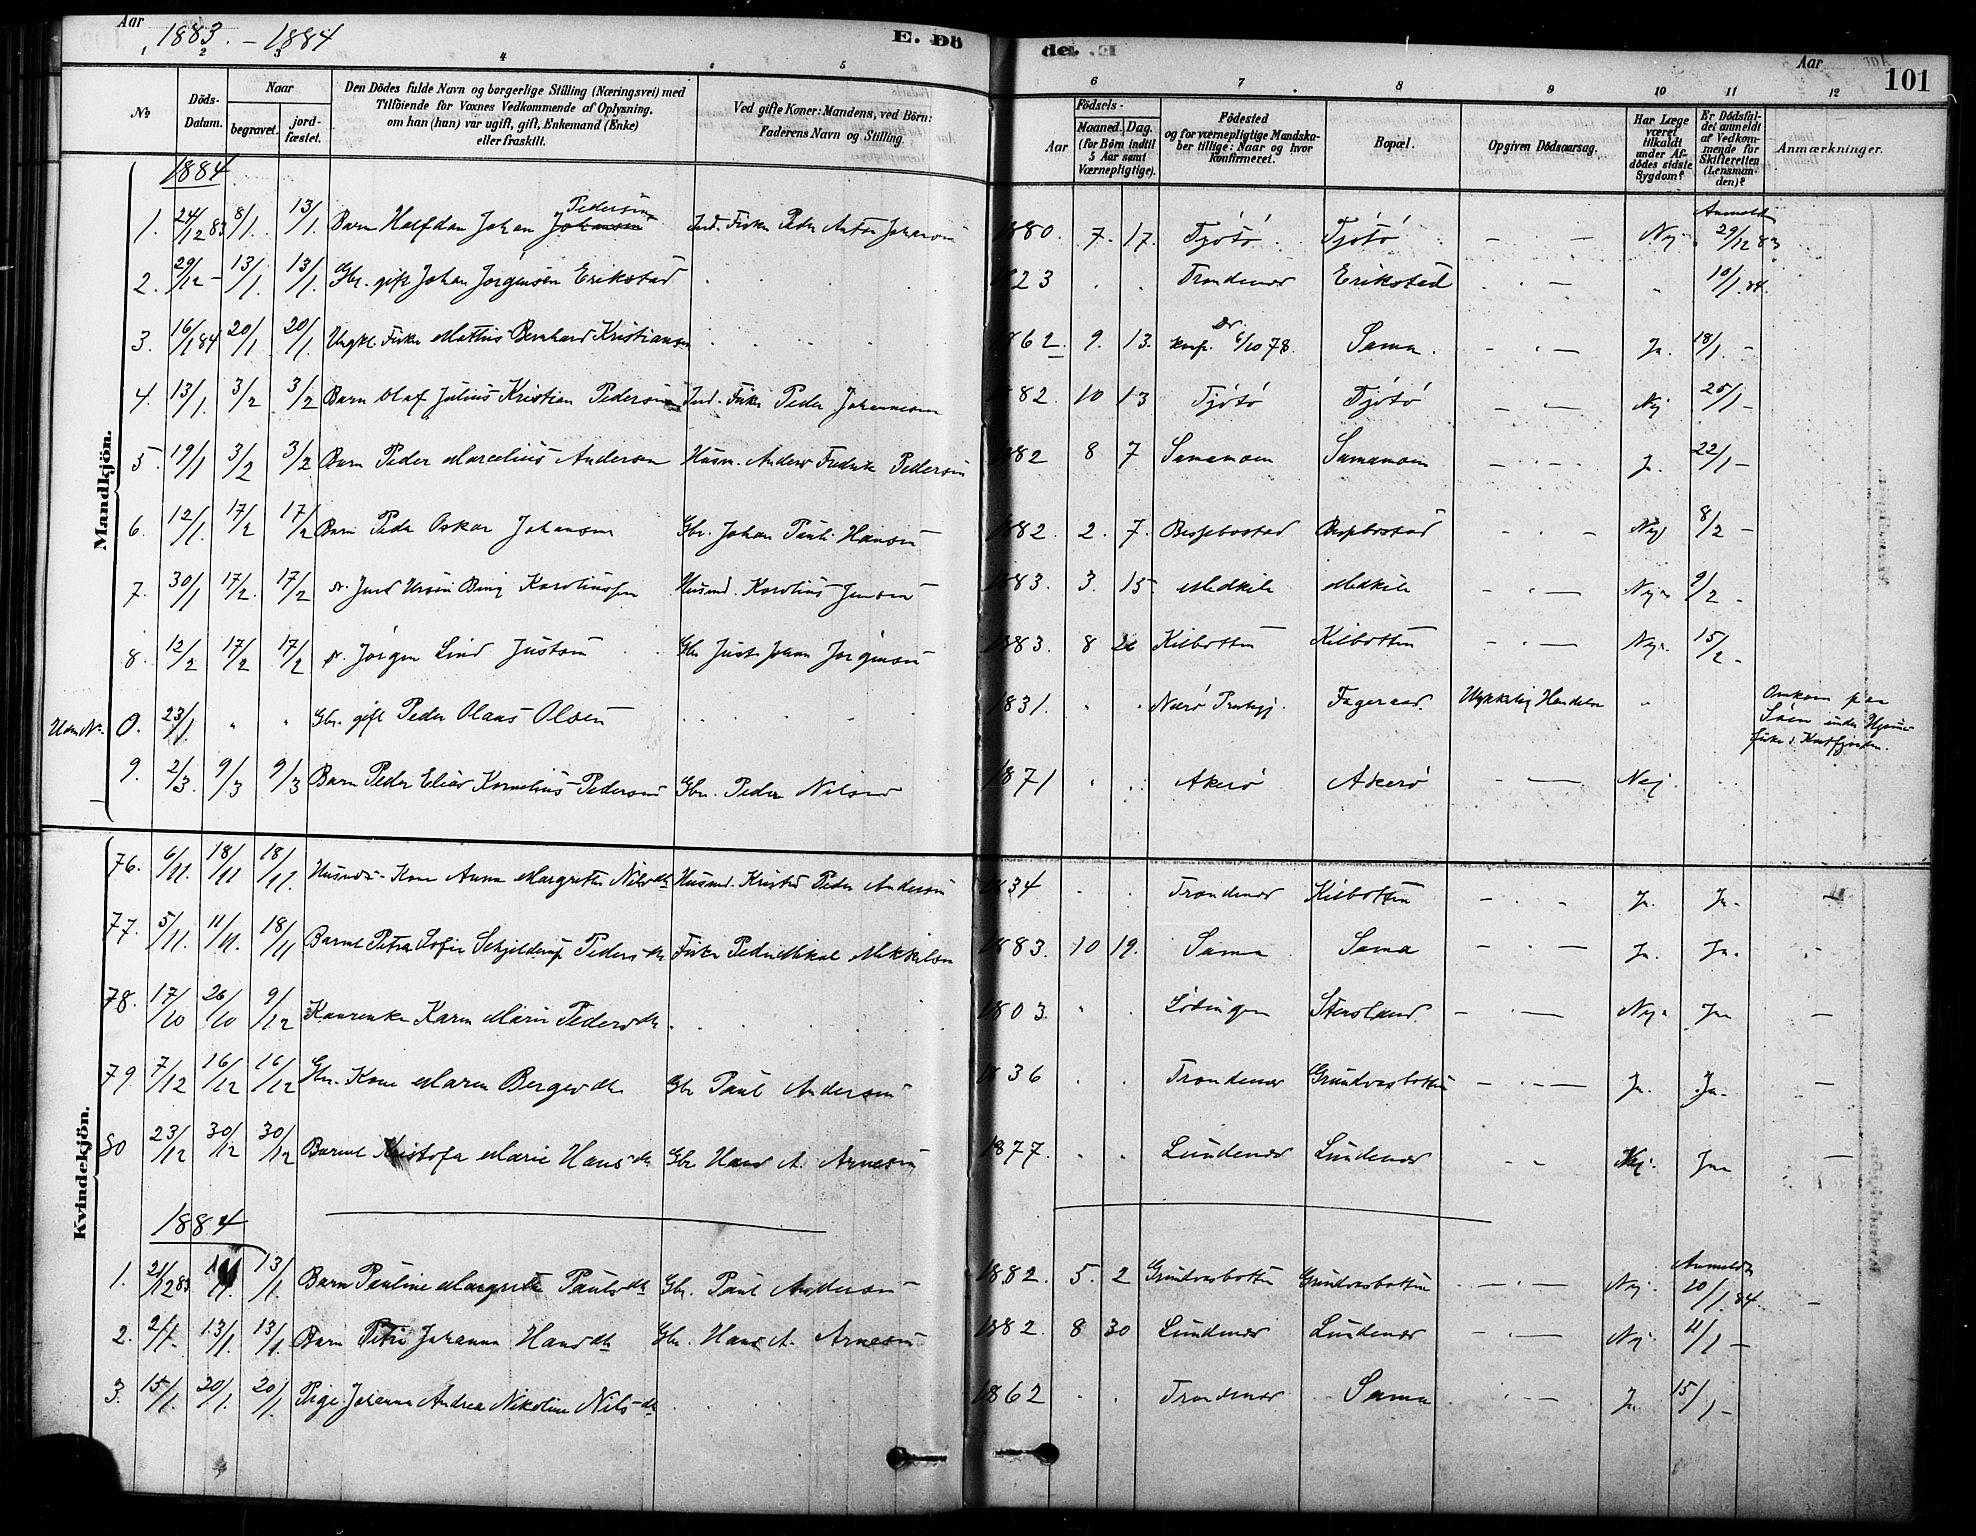 Aar 1883. - 1884 E. Dö de. Aar 101
1 2 3 4 5 6 7 8 9 10 11 12
No
Döds-Datum.
Naar
begravet.
jord-fæstet.
Den Dödes fulde Navn og borgerlige Stilling (Næringsvei) med
Tilföiende for Voxnes Vedkommende af Oplysning,
om han (hun) var ugift, gift, Enkemand (Enke)
eller fraskilt.
Ved gifte Koner: Mandens, ved Börn:
Faderens Navn og Stilling.
Födsels-
Aar
Maaned. Dag.
(for Börn indtil
5 Aar samt
Værnepligtige).
Födested
og for værnepligtige Mandska-
ber tillige: Naar og hvor
konfirmeret.
Bopæl.
Opgiven Dödsaarsag.
Har Læge
været
tilkaldt
under Af-
dödes sidste
Sygdom?
Er Dödsfal-
det anmeldt
af Vedkom-
mende for
Skifteretten
(Lensman-
den)?
Anmærkninger.
Mandkjön.
1884
1. 24/12 83 8/1. 13/1. Barn Halfdan Johan Johansen Pedersen Ind. Fisker Peder Anton Johansen 1880. 7. 17. Tjötö Tjötö - - Nej. Anmeldt 29/12 83
2. 29/12 - 13/1. 13/1. Gbr. gift Johan Jorgensen Erikstad 1823 Trondenes Erikstad - - 10/1. 84.
3. 16/1 84 20/1. 20/1. Ungkl. Fisker Mathias Bernhard Kristiansen 1862 9. 13. konf. 6/10 78. Sama. - - Ja. 18/1. -
4. 13/1. 3/2 3/2 Barn Olaf Julius Kristian Pedersen Ind. Fisker Peder Johannesen 1882. 10 13 Tjötö Tjötö - - Nej 25/1 -
5. 19/1 3/2 3/2 Barn Peder Marcelius Andersen Husm. Anders Fredrik Pedersen 1882 8 7 Samamoen Samamoen - - Ja. 22/1 -
6. 12/1. 17/2 17/2 Barn Peder Oskar Johansen Gbr. Johan Pauli Hansen 1882. 2. 7. Bispebostad Bispebostad - - Nej 8/2 -
7. 30/1 17/2. 17/2 Karoliussen Husmd. Karolius Jensen 1883. 3. 15 Medkile Medkile - - Nej 9/2 -
8. 12/2 17/2 17/2 Jörgen Lind Justsen Gbr Just Johan Jörgensen 1883. 8 26 Kilbotten Kilbotten - - Nej. 15/2 -
Uden No. 0. 23/1 " " Gbr. gift Peder Olaus Olsen 1831. Nærö Prestegj. Fageraas. Ulykkelig Hendelse " Omkom paa
Söen under
Fiske i
9. 2/3. 9/3 9/3 Barn Peder Elias Kornelius Pedersen Gbr. Peder Nilsen 1871 Akerö Akerö - - Nej.
Kvindekjön.
76. 6/11. 18/11 18/11. Husmds-Kone Anna Margrethe Nilsdtr Husmd. Kristen Peder Andersen 1834 Trondenes Kilbotten - - Ja. Ja. -
77. 5/11. 11/11. 18/11 Barnet Petra Sofie Schjelderup Pedersdtr Fisker Peder Mikal Mikkelsen 1883. 10 19. Sama Sama - - Ja. Ja. -
78. 17/10 26/10 9/12 Karen Marie Pedersdtr. 1803. Lödingen Stensland - - Nej. Ja -
79. 7/12 16/12 16/12 Gbr. Kone Maren Bergersdtr Gbr Paul Andersen 1836 Trondenes Grundvasbotten - - Ja. Ja. -
80 23/12 30/12 30/12 Barnet Kristofa Marie Hansdtr Gbr Hans A. Arnesen 1877. Lundenes Lundenes - - Nej. Ja -
1884
1. 21/12 83 13/1. Barn Pauline Margrete Paulsdtr Gbr. Paul Andersen 1882. 5. 2 Grundvasbotten Grundvasbotten - - Nej. Anmeldt 20/1 84. -
2. 2/1. 13/1. 13/1. Barn Petra Johanna Hansdtr Gbr. Hans A. Arnesen 1882. 8 30 Lundenes Lundenes - - Nej. 11/1 -
3. 15/1. 20/1. 20/1. Pige Johanna Andrea Nikoline Nilsdtr 1862 Trondenes Sama - - Ja. 15/1 -